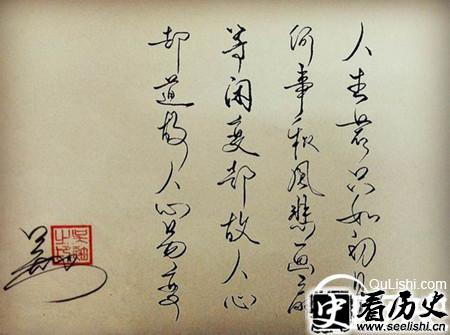 人生若只如初见
何事秋风悲画扇
等闲变却故人心
却道故人心易变
QuLishi.com
史看历史
www.seelishi.cn